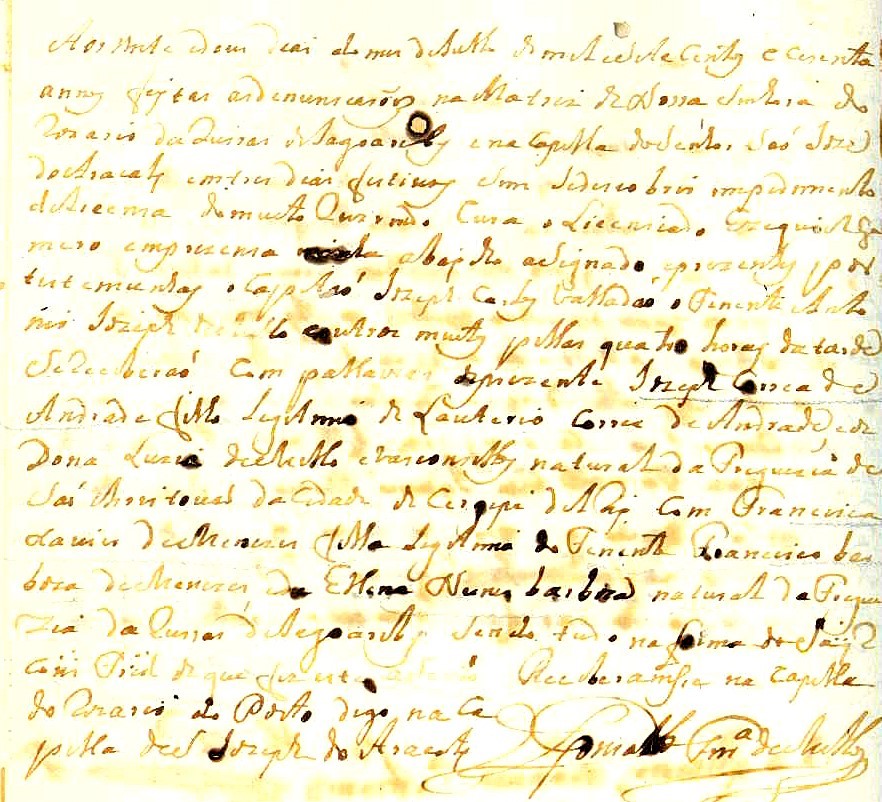 Aos vinte e dous dias do mes de Julho de mil e sete centos e cecenta
annos feytas as denunciacoẽs na Matriz de Nossa Senhora do
Rozario das Russas de Jagoaribe e na Capella do Senhor Saõ Joze
do Aracaty em tres dias festivos sem se descobrir impedimento
de licenca do muito Reverendo Cura o Licenciado
em prezenca minha abayxo asignado e prezentes por
testemunhas o Capitaõ Jozeph Valladaõ o Tenente Anto
nio Jozeph de Mello e outras muitas pellas quatro horas da tarde
Se Receberaõ Com pallavras de prezente Jozeph Correa de
Andrade filho Legitimo de Lauterio Correa de Andrade, e de
Dona Luzia de Mello e Vasconsellos natural da Freguezia de
Saõ da Cidade de Cergipe d ElRey Com Francisca
Xavier de Menezes filha Legitima do Tenente Francisco bar
boza de Menezes, e de Ellena Nunes barboza natural da Fregue
zia das Russas de Jagoaribe Sendo tudo na forma do Sag
Conc Trid de que fiz este Receberamse na Capella
do Rozario do Porto digo na Ca
pella de S Jozeph do Aracaty de Mello